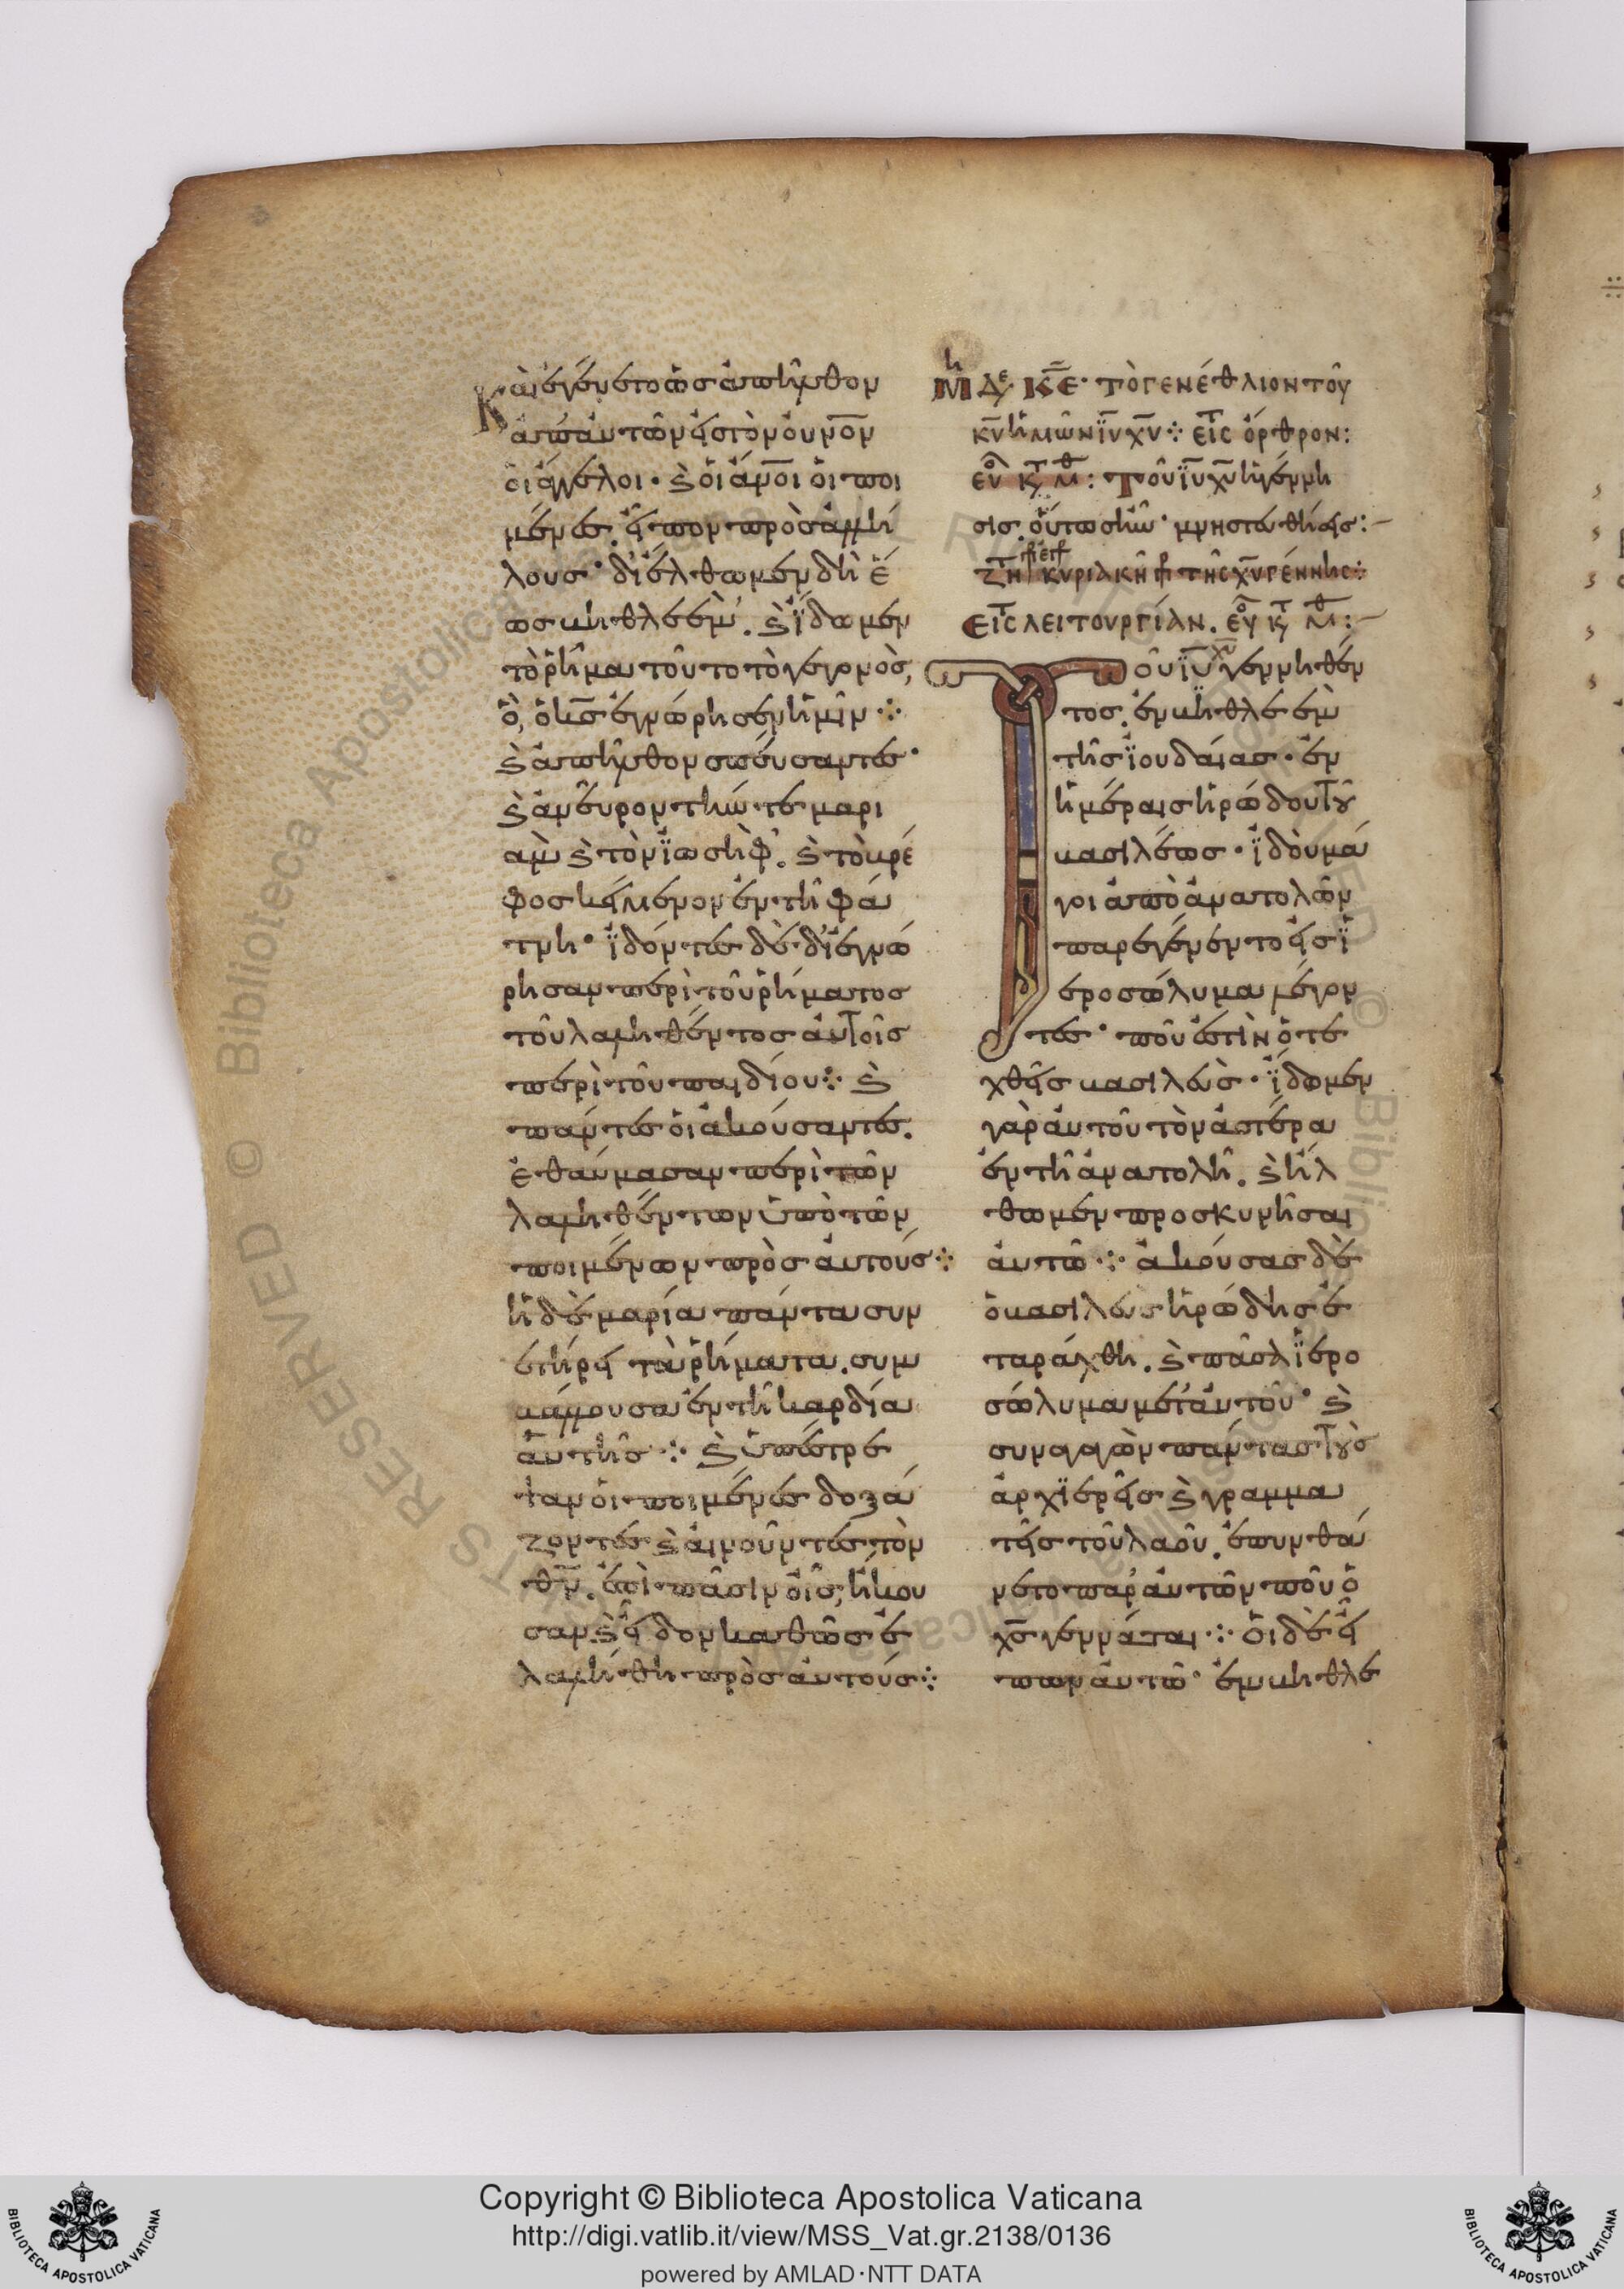 Καὶ ἐγένετο ὡς ἀπῆλθον
ἀπ' αὐτῶν εἰς τὸν οὐνον
οἱ ἄγγελοι· καὶ οἱ ἀνοι οἱ ποι
μένες. εἶπον πρὸς ἀλλή
λους· διέλθωμεν δὴ ἕ
ως βηθλεέμ. καὶ ἴδωμεν
τὸ ῥῆμα τοῦτο τὸ γεγονὸς,
ὃ, ὁ κς ἐγνώρησεν ἡμῖν ⁘
καὶ ἀπῆλθον σπεύσαντες·
καὶ ἀνεῦρον τήν τε μαρι
ὰμ καὶ τὸν ϊωσὴφ. καὶ τὸ βρέ
φος κείμενον ἐν τῆ φά
τνη· ϊδόντες δὲ διεγνώ
ρησαν περὶ τοῦ ῥήματος
τοῦ λαληθέντος αὐτοῖς
περὶ τοῦ παιδίου⁘ καὶ
πάντες οἱ ἀκούσαντες.
ἐθαύμασαν περὶ τῶν
λαληθέντων ὑπὸ τῶν
ποιμένων πρὸς αὐτούς⁘
ἡ δὲ μαρία πάντα συν
ετήρει τὰ ῥήματα. συμ
βάλλουσα ἐν τῆ καρδία
αὐτῆς ⁘ καὶ ὑπέστρε
ψαν οἱ ποιμένες δοξά
ζοντες καὶ αἰνοῦντες τὸν
θν. ἐπὶ πᾶσιν οἷς, ἤκου
σαν καὶ εἶδον καθὼς ἐ
λαλήθη πρὸς αὐτούς⁘
Μη Δε ΚΕ· ΤὸΓΕΝΈΘΛΙΟΝ ΤΟῦ
ΚΥ ἡΜῶΝ ΙΥ ΧΥ⁘ ΕἸΣ ὌΡΘΡΟΝ:
ΕΥ Κτ Μθ: Τοῦ ιυ χυ ἡ γέννη
σις. οὕτως ἦν· μνηστευθείσης:–
ΖΤΗ ΚΥΡΙΑΚῆ ΠΡ ΤῆΣ ΧΥ ΓΈΝΝΗΣ:
ΕἸΣ ΛΕΙΤΟΥΡΓΊΑΝ. ΕΥ Κτ Μθ:–
Τοῦ ιυ χυ γεννηθέν
τος. ἐν βηθλεὲμ
τῆς ϊουδαίας· ἐν
ἡμέραις ἡρώδου τοῦ
βασιλέως· ϊδοὺ μά
γοι ἀπὸ ἀνατολῶν
παρεγένεντο εἰς ϊ
εροσόλυμα λέγον
τες· ποῦ ἐστὶν ὁ τε
χθεὶς βασιλεὺς· ϊδομεν
γὰρ αὐτοῦ τὸν ἀστέρα
ἐν τῆ ἀνατολῆ. καὶ ἤλ
θωμεν προσκυνῆσαι
αὐτῶ ⁘ ἀκούσας δὲ
ὁ βασιλεὺς ἡρώδης ἐ
ταράχθη. καὶ πᾶσα ϊερο
σόλυμα μετ' αὐτοῦ· καὶ
συναγαγὼν πάντας τοὺς
ἀρχϊερεῖς καὶ γραμμα
τεῖς τοῦ λαοῦ. ἐπυνθά
νετο παρ' αὐτῶν ποῦ ὁ
χς γεννᾶται ⁘ οἱ δὲ εἶ
πων αὐτῶ· ἐν βηθλε
Copyright © Biblioteca Apostolica Vaticana
http://digi.vatlib.it/view/MSS_Vat.gr.2138/0136
powered by AMLAD·NTT DATA